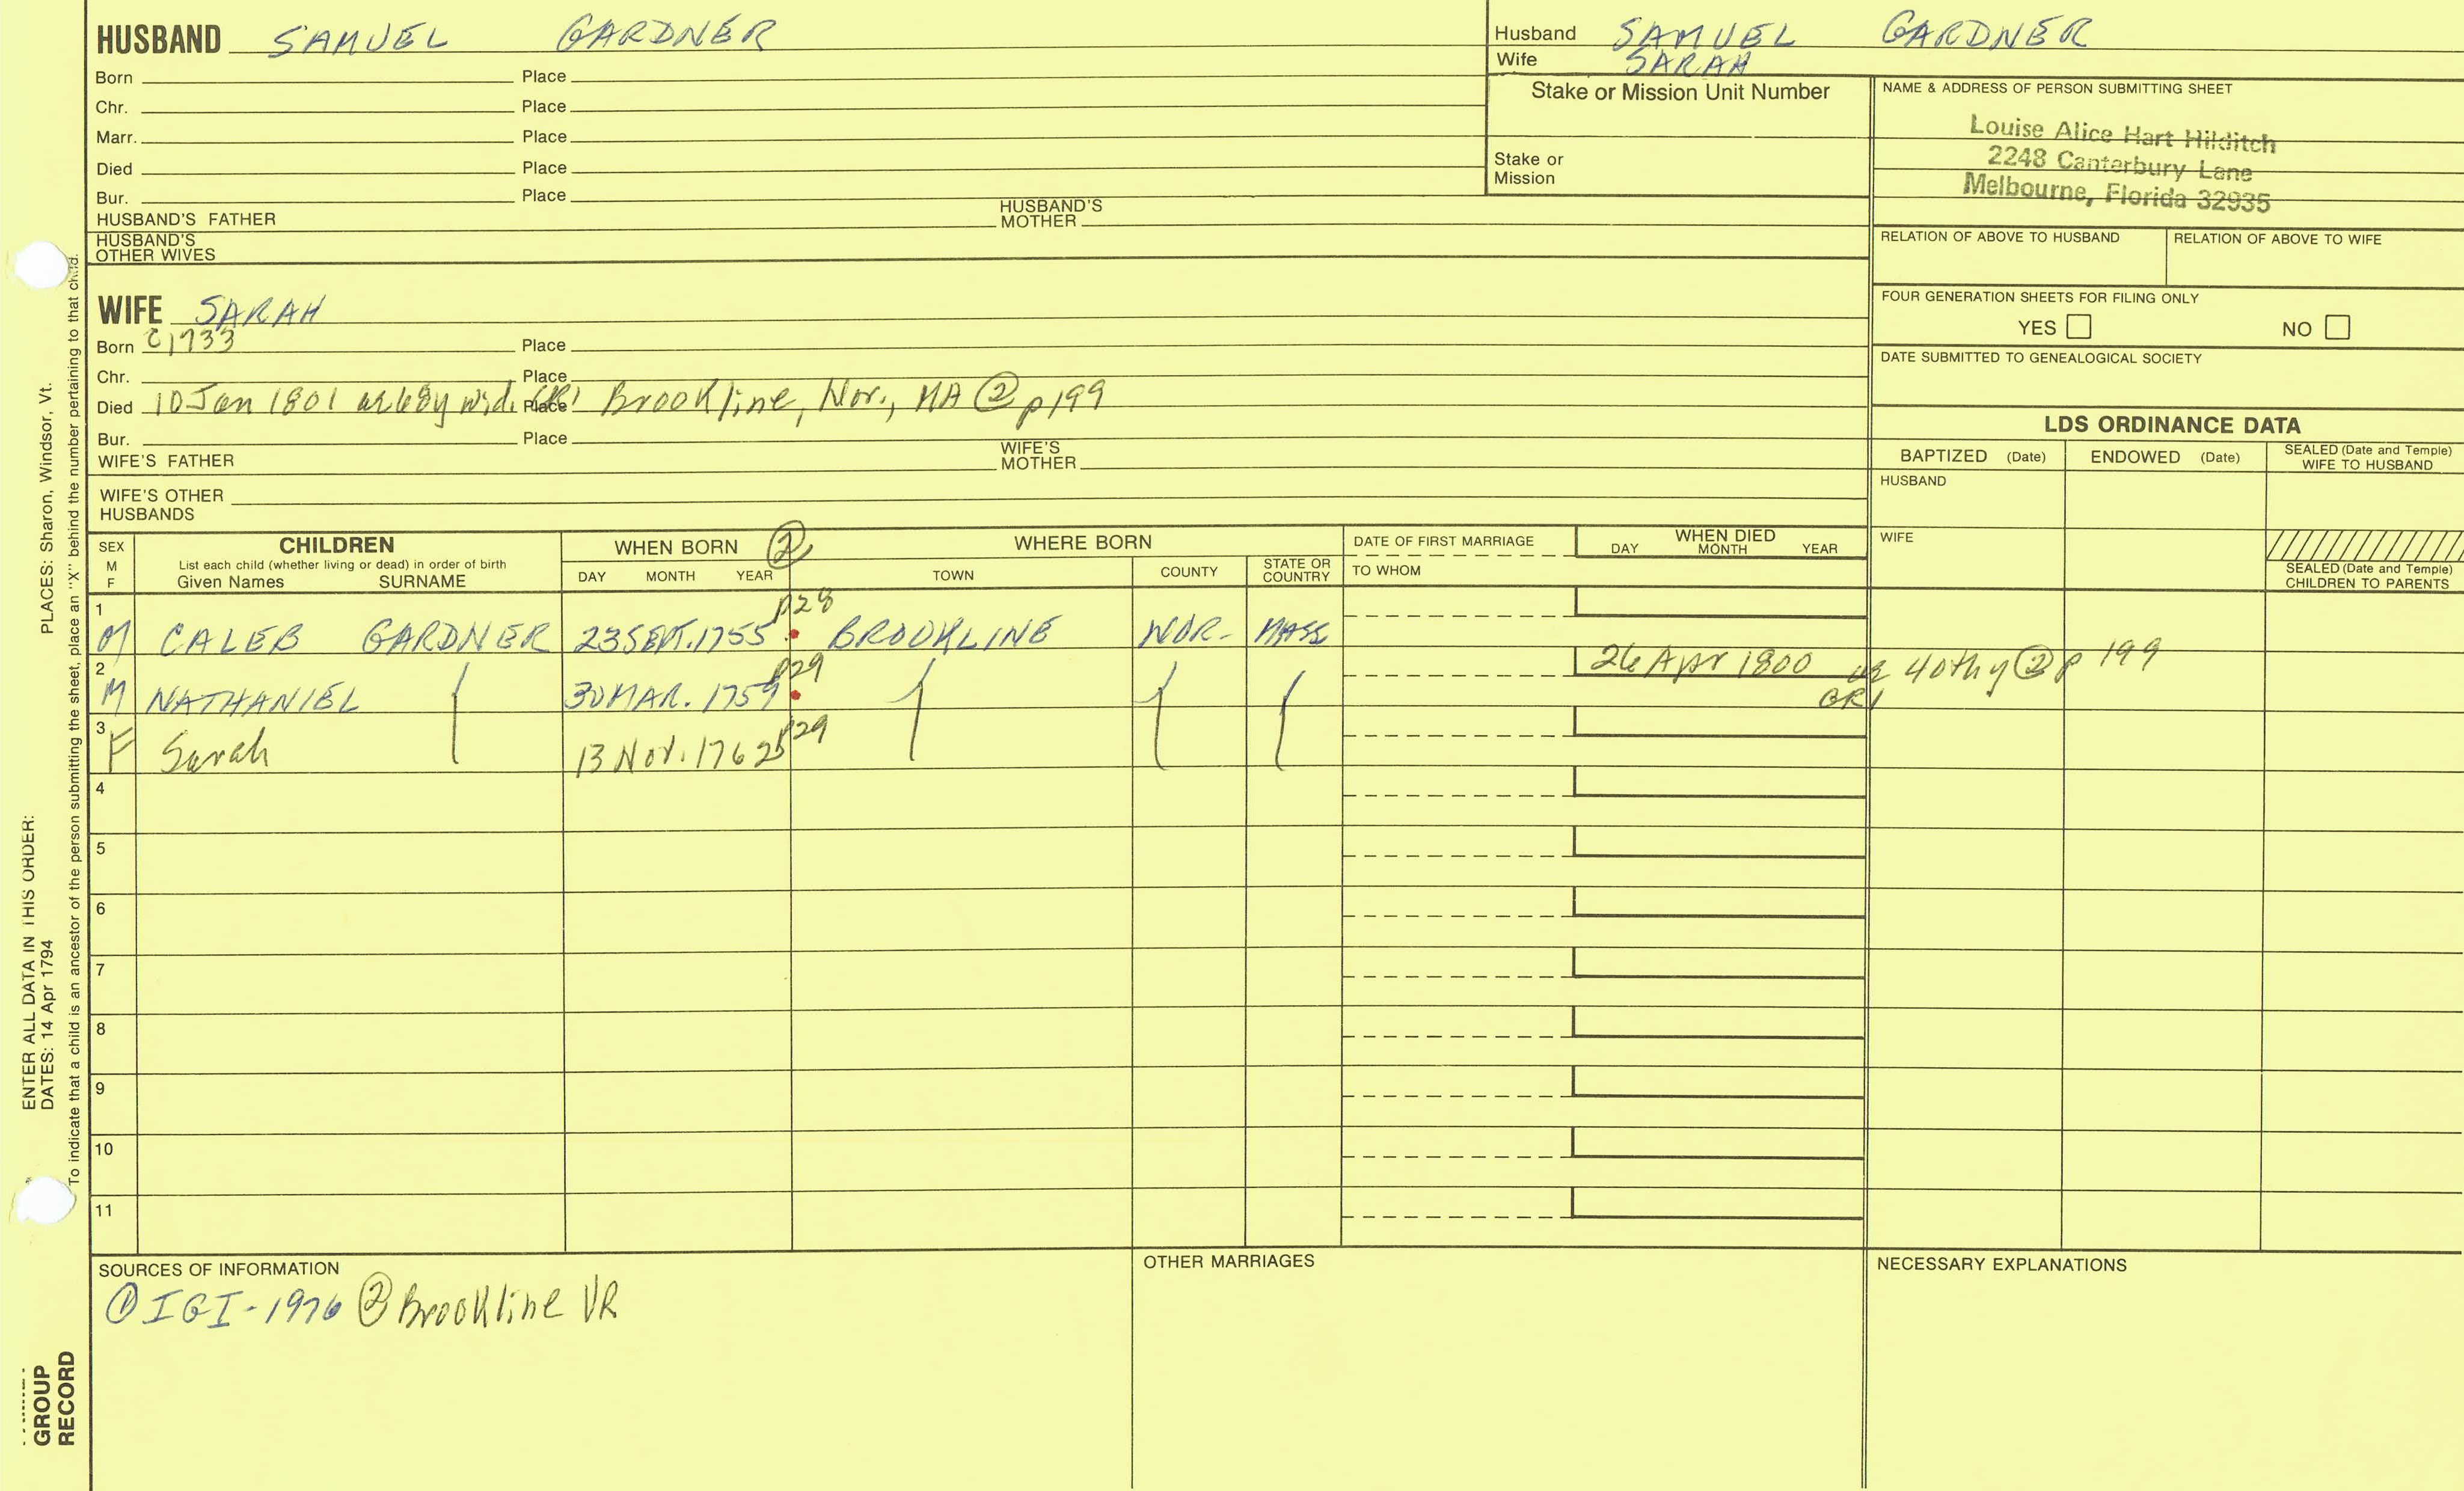 HUSBAND SAMUEL GARDNER
Born Place
Chr. Place
Marr. Place
Died Place
Bur. Place
HUSBAND'S FATHER HUSBAND'S MOTHER
HUSBAND'S OTHER WIVES
Husband SAMUEL GARDNER
Wife SARAH
Stake or Mission Unit Number
Stake or Mission
NAME & ADDRESS OF PERSON SUBMITTING SHEET
Louise Alice Hart Hilditch
2248 Canterbury Lane
Melbourne, Florida 32935
RELATION OF ABOVE TO HUSBAND RELATION OF ABOVE TO WIFE
FOUR GENERATION SHEETS FOR FILING ONLY
YES NO
DATE SUBMITTED TO GENEALOGICAL SOCIETY
WIFE SARAH
Born C1733 Place
Chr. Place
Died 10 Jan 1801 ae 68y wid. Place Brookline, Nor., MA ② p199
Bur. Place
WIFE'S FATHER WIFE'S MOTHER
WIFE'S OTHER HUSBANDS
LDS ORDINANCE DATA
BAPTIZED (Date) ENDOWED (Date) SEALED (Date and Temple) WIFE TO HUSBAND
HUSBAND
WIFE
SEALED (Date and Temple) CHILDREN TO PARENTS
SEX M F
CHILDREN
List each child (whether living or dead) in order of birth
Given Names SURNAME
WHEN BORN ②
DAY MONTH YEAR
WHERE BORN
TOWN COUNTY STATE OR COUNTRY
DATE OF FIRST MARRIAGE
TO WHOM
WHEN DIED
DAY MONTH YEAR
1 M CALEB GARDNER 23 SEPT. 1755 p28 BROOKLINE NOR- MASS
2 M NATHANIEL 30 MAR. 1759 p29 26 Apr 1800 ae 40thy ② p 199 GR1
3 F Sarah 13 Nov. 1762 p29
4
5
6
7
8
9
10
11
SOURCES OF INFORMATION
① IGI-1976 ② Brookline VR
OTHER MARRIAGES
NECESSARY EXPLANATIONS
PLACES: Sharon, Windsor, Vt.
ENTER ALL DATA IN THIS ORDER:
DATES: 14 Apr 1794
To indicate that a child is an ancestor of the person submitting the sheet, place an "X" behind the number pertaining to that child.
GROUP
RECORD